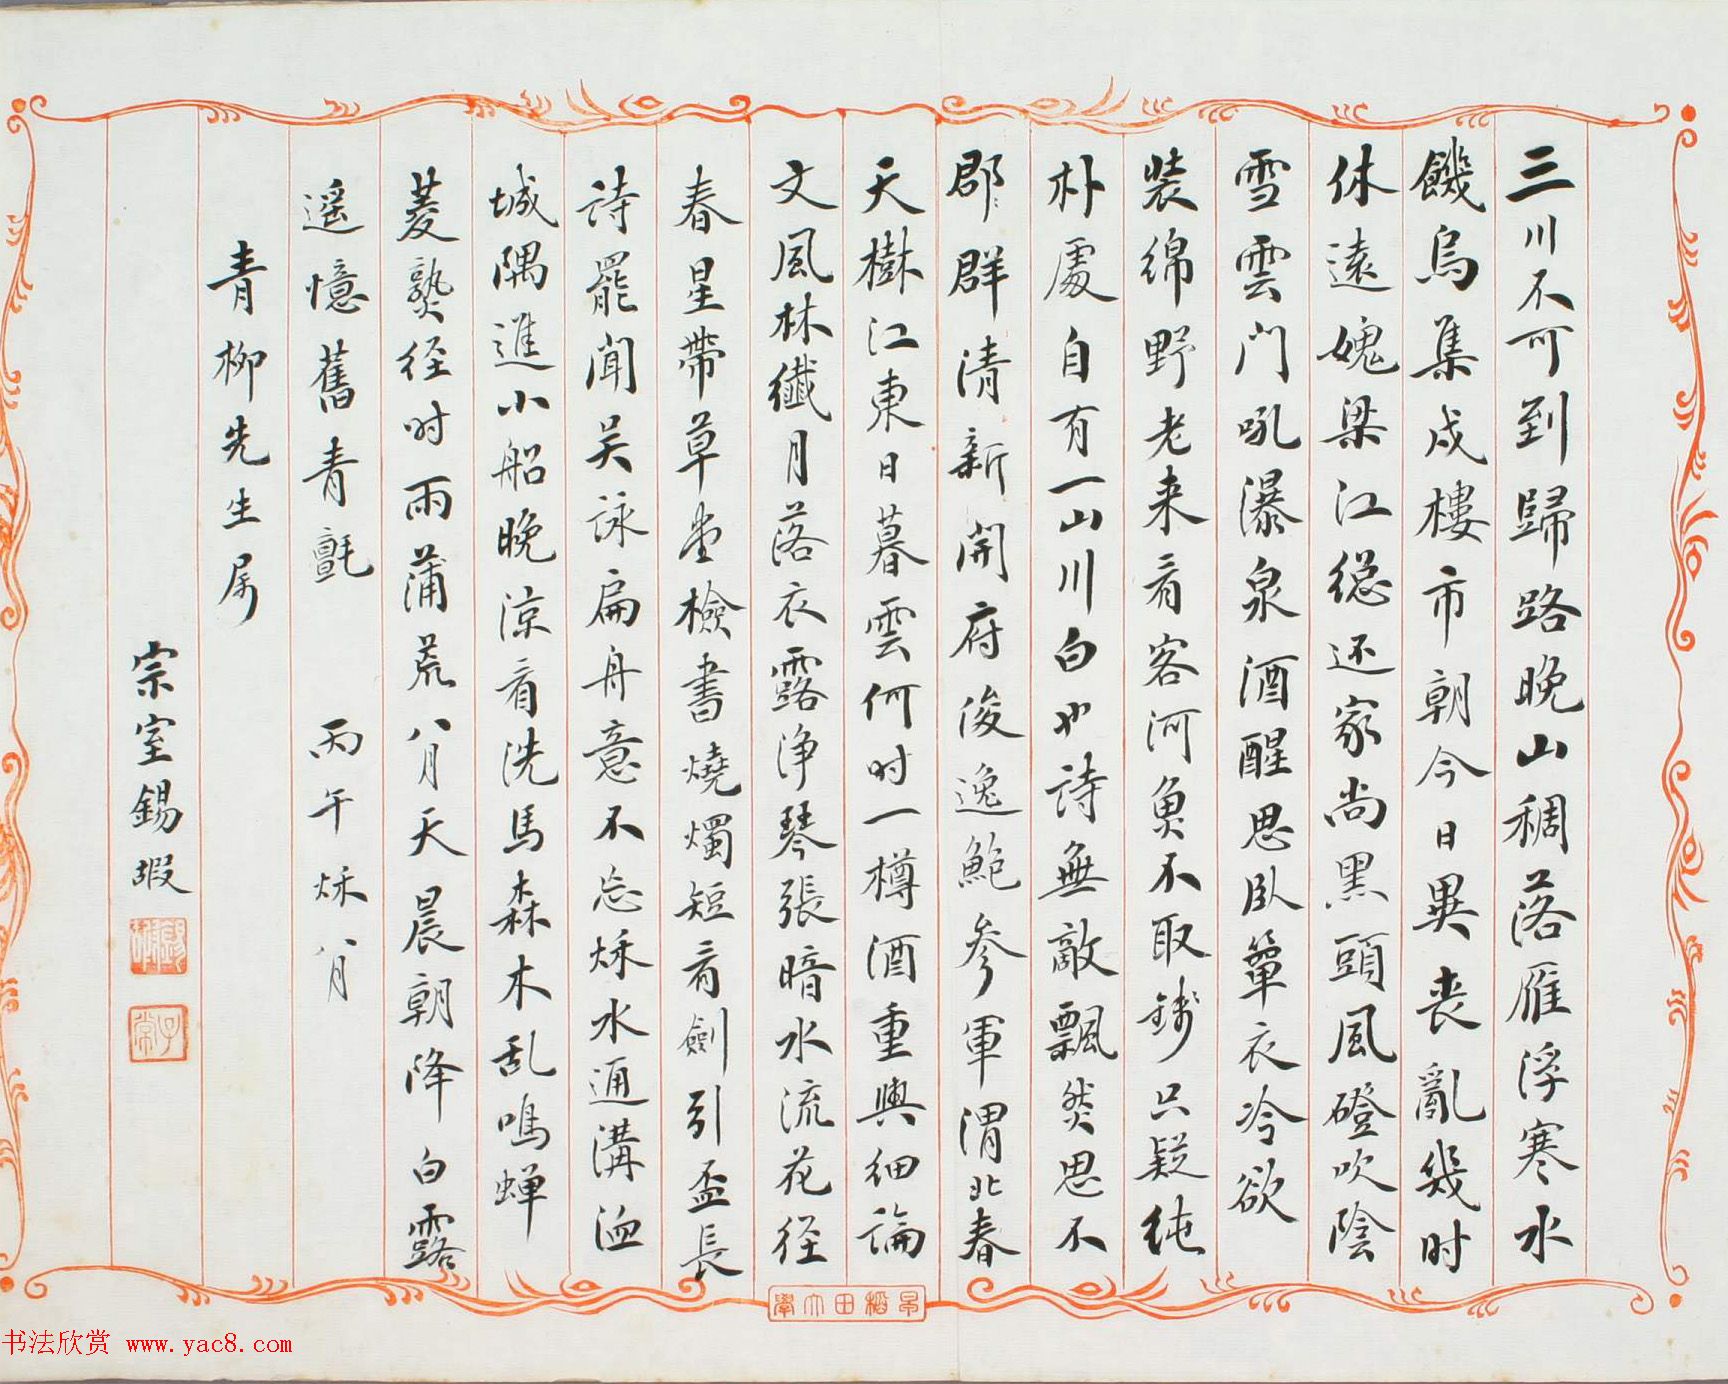 三川不可到歸路晚山稠落雁浮寒水
饑烏集戍樓市朝今日異喪亂幾时
休遠媿梁江總还家尚黑頭風磴吹陰
雪雲門吼瀑泉酒醒思卧簟衣冷欲
裝綿野老来看客河魚不取錢只疑純
朴處自有一山川白也詩無敵飄然思不
郡群清新開府俊逸鮑參軍渭北春
天樹江東日暮雲何时一樽酒重與細論
文風林纖月落衣露浄琴張暗水流花径
春星帶草堂檢書燒燭短看劍引盃長
詩罷聞吴詠扁舟意不忘秌水通溝洫
城隅進小船晚涼看洗馬森木乱鳴蝉
菱熟径时雨蒲荒八月天晨朝降白露
遥憶舊青氈 丙午秌八月
青柳先生属
宗室錫嘏
錫嘏
子常
早稻田大學
书法欣赏 www.yac8.com